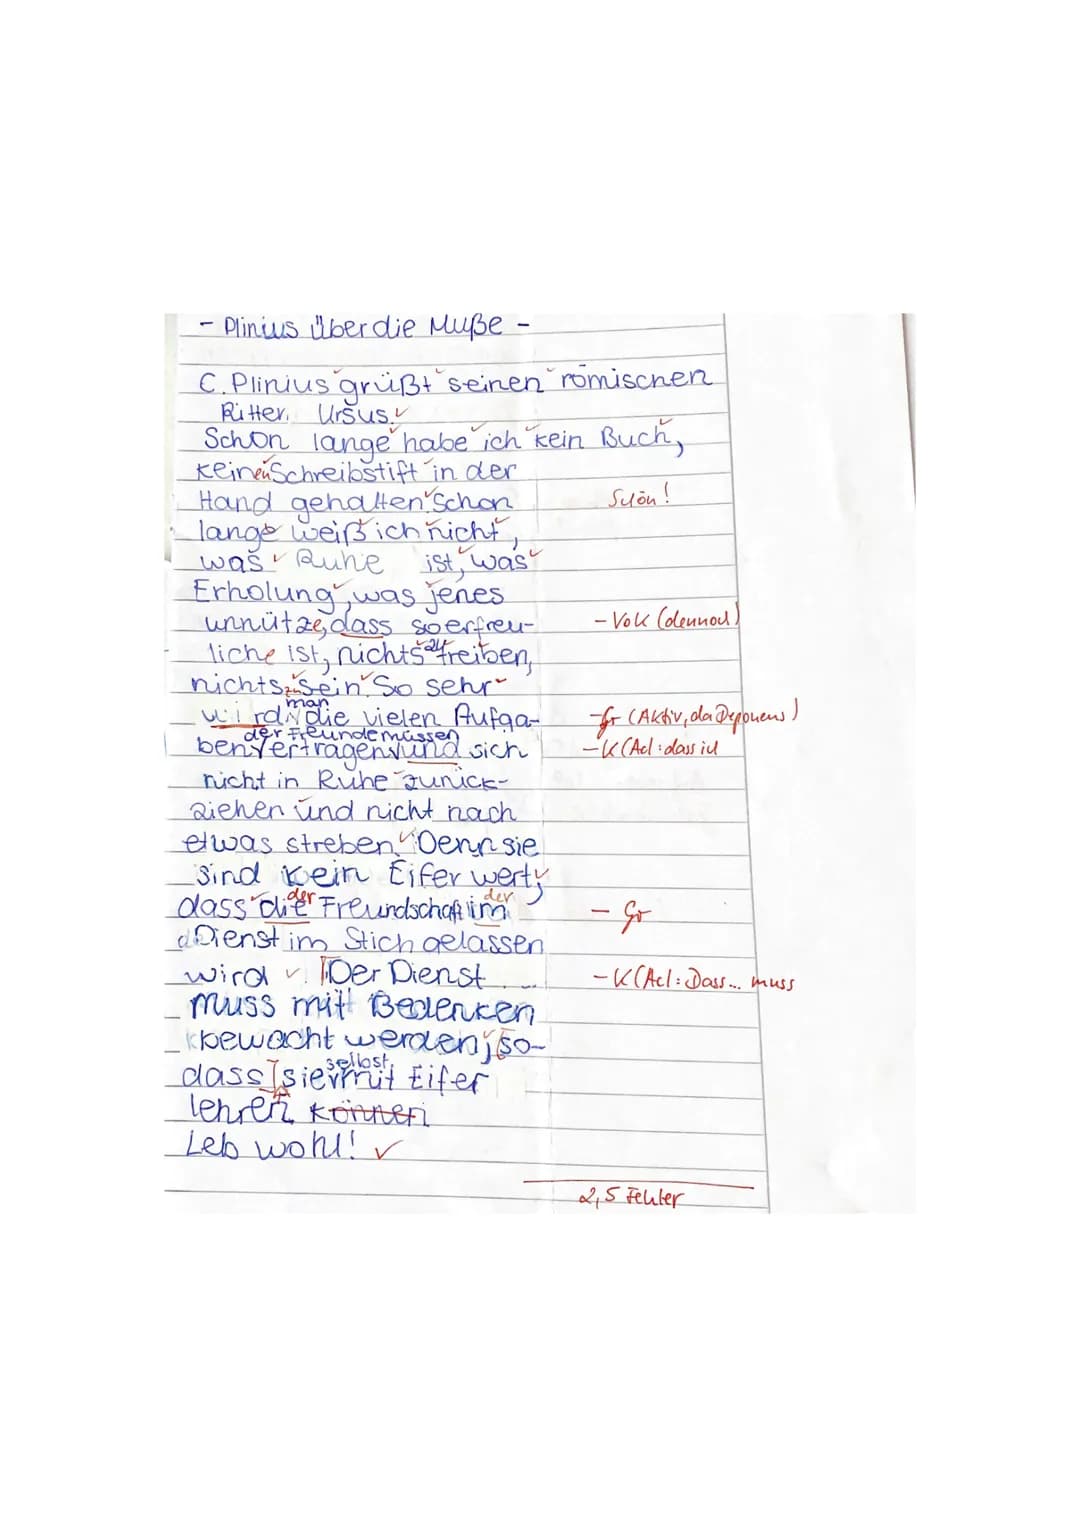 - Plinius über die Muße -
C. Plinius grüßt seinen römischen
Ritter Ursus.
Schon lange habe ich kein Buch,
keinen Schreibstift in der
Hand gehalten. Schon
Schön!
lange weiß ich nicht,
was Ruhe ist, was
Erholung, was jenes
unnütze, dass so erfreu-
- Vok (dennoch)
liche ist, nichts zu treiben,
nichts zu sein. So sehr
man
wird die vielen Aufga-
- Gr (Aktiv, da Deponens)
der Freunde müssen
ben vertragen und sich
- K (AcI: dass ich
nicht in Ruhe zurück-
ziehen und nicht nach
etwas streben. Denn sie
sind kein Eifer wert,
der der
dass die Freundschaft im
- Gr
Dienst im Stich gelassen
wird. Der Dienst
- K (AcI: Dass... muss
muss mit Bedenken
bewacht werden, so-
selbst
dass sie mit Eifer
lehren können
Leb wohl!
2,5 Fehler